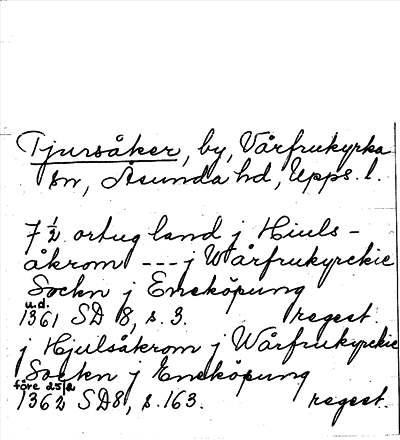 Tjursåker, by, Vårfrukyrka
sn, Åsunda hd, Upps. l.
7 1/2 ortug land j Hiuls-
åkrom --- j Wårfrukyrckie
Sockn j Eneköpung
u.d.
1361 SD 8, s. 3. regest.
j Hjulsåkrom j Wårfrukyrckie
Sockn j Eneköpung
före 25/2
1362 SD8, s. 163. regest.